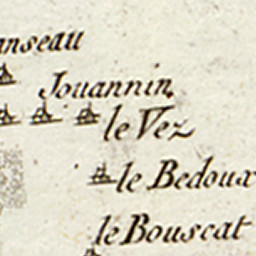 anseau
Jouannin
le Vez
le Bedoux
le Bouscat